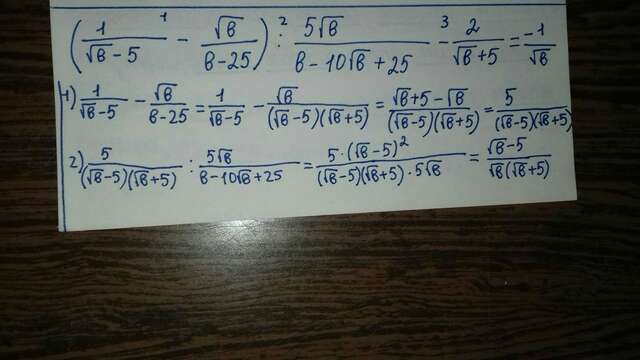 (1/(√в-5) ¹ - √в/(в-25)) :² 5√в/(в-10√в+25) -³ 2/(√в+5) = -1/√в
1) 1/(√в-5) - √в/(в-25) = 1/(√в-5) - √в/((√в-5)(√в+5)) = (√в+5-√в)/((√в-5)(√в+5)) = 5/((√в-5)(√в+5))
2) 5/((√в-5)(√в+5)) : 5√в/(в-10√в+25) = 5·(√в-5)²/((√в-5)(√в+5)·5√в) = (√в-5)/(√в(√в+5))